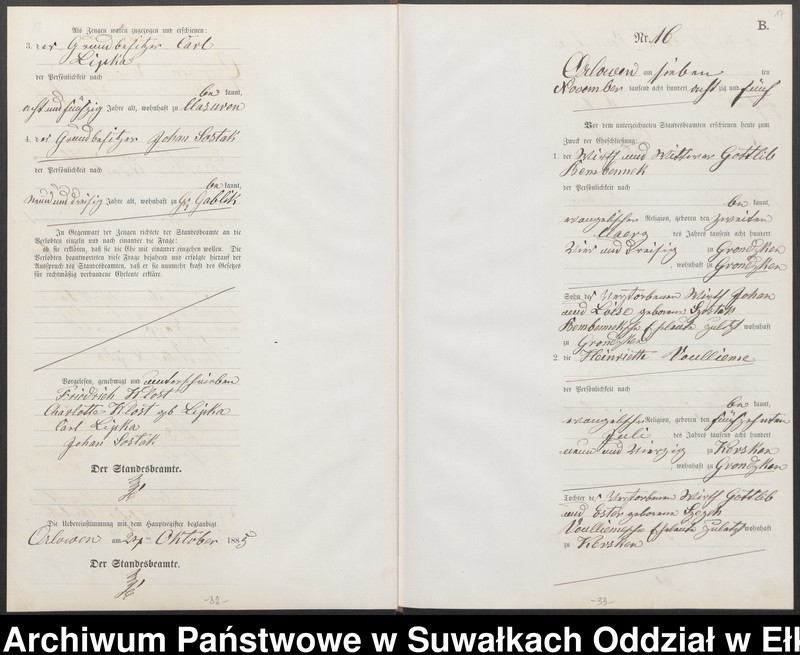 Als Zeugen waren zugezogen und erschienen:
3. der Grundbesitzer Carl
Lipka
der Persönlichkeit nach
be kannt,
acht und fünfzig Jahre alt, wohnhaft zu
4. der Grundbesitzer Johan Sostak
der Persönlichkeit nach
be kannt,
neun und dreißig Jahre alt, wohnhaft zu Gr. Gablik
In Gegenwart der Zeugen richtete der Standesbeamte an die
Verlobten einzeln und nach einander die Frage:
ob sie erklären, daß sie die Ehe mit einander eingehen wollen. Die
Verlobten beantworteten diese Frage bejahend und erfolgte hierauf der
Ausspruch des Standesbeamten, daß er sie nunmehr kraft des Gesetzes
für rechtmäßig verbundene Eheleute erkläre.
Vorgelesen, genehmigt und unterschrieben
Friedrich Klost
Charlotte Klost geb Lipka
Carl Lipka
Johan Sostak
Der Standesbeamte.
Die Uebereinstimmung mit dem Hauptregister beglaubigt
Orlowen am Oktober 1885
Der Standesbeamte.
-32-
17
B.
Nr. 16
Orlowen am sieben ten
November tausend acht hundert acht zig und fünf
Vor dem unterzeichneten Standesbeamten erschienen heute zum
Zweck der Eheschließung:
1. der Wirth und Wittwer Gottlieb
Bembennek
der Persönlichkeit nach
be kannt,
evangelischer Religion, geboren den zweiten
des Jahres tausend acht hundert
vier und dreißig zu Grondzken
, wohnhaft zu Grondzken
Sohn des verstorbenen Wirth Johan
und Loise geborene Sostak
Bembennekschen Eheleute zuletzt wohnhaft
zu Grondzken
2. die Heinriette Voullieme
der Persönlichkeit nach
be kannt,
evangelischer Religion, geboren den fünfzehnten
Juli des Jahres tausend acht hundert
neun und vierzig zu Kersken
, wohnhaft zu Grondzken
Tochter des verstorbenen Wirth Gottlieb
und Ester geborene
Voulliemeschen Eheleute zuletzt wohnhaft
zu Kersken
-33-
Archiwum Państwowe w Suwałkach Oddział w Ełk